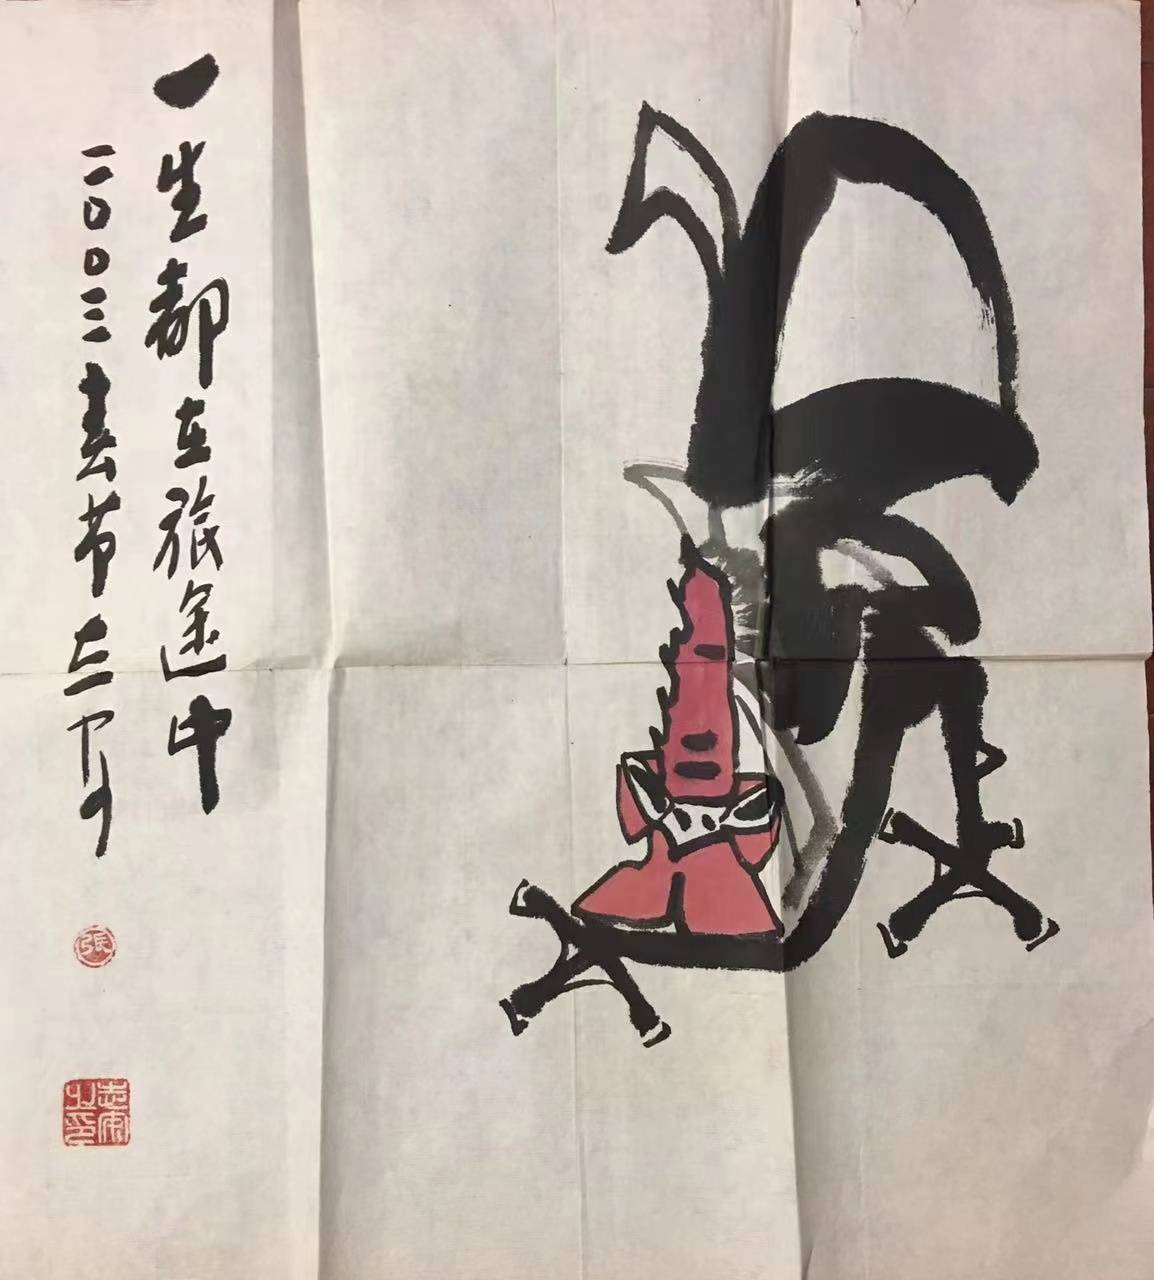 一生都在旅途中
二〇〇三春节
張